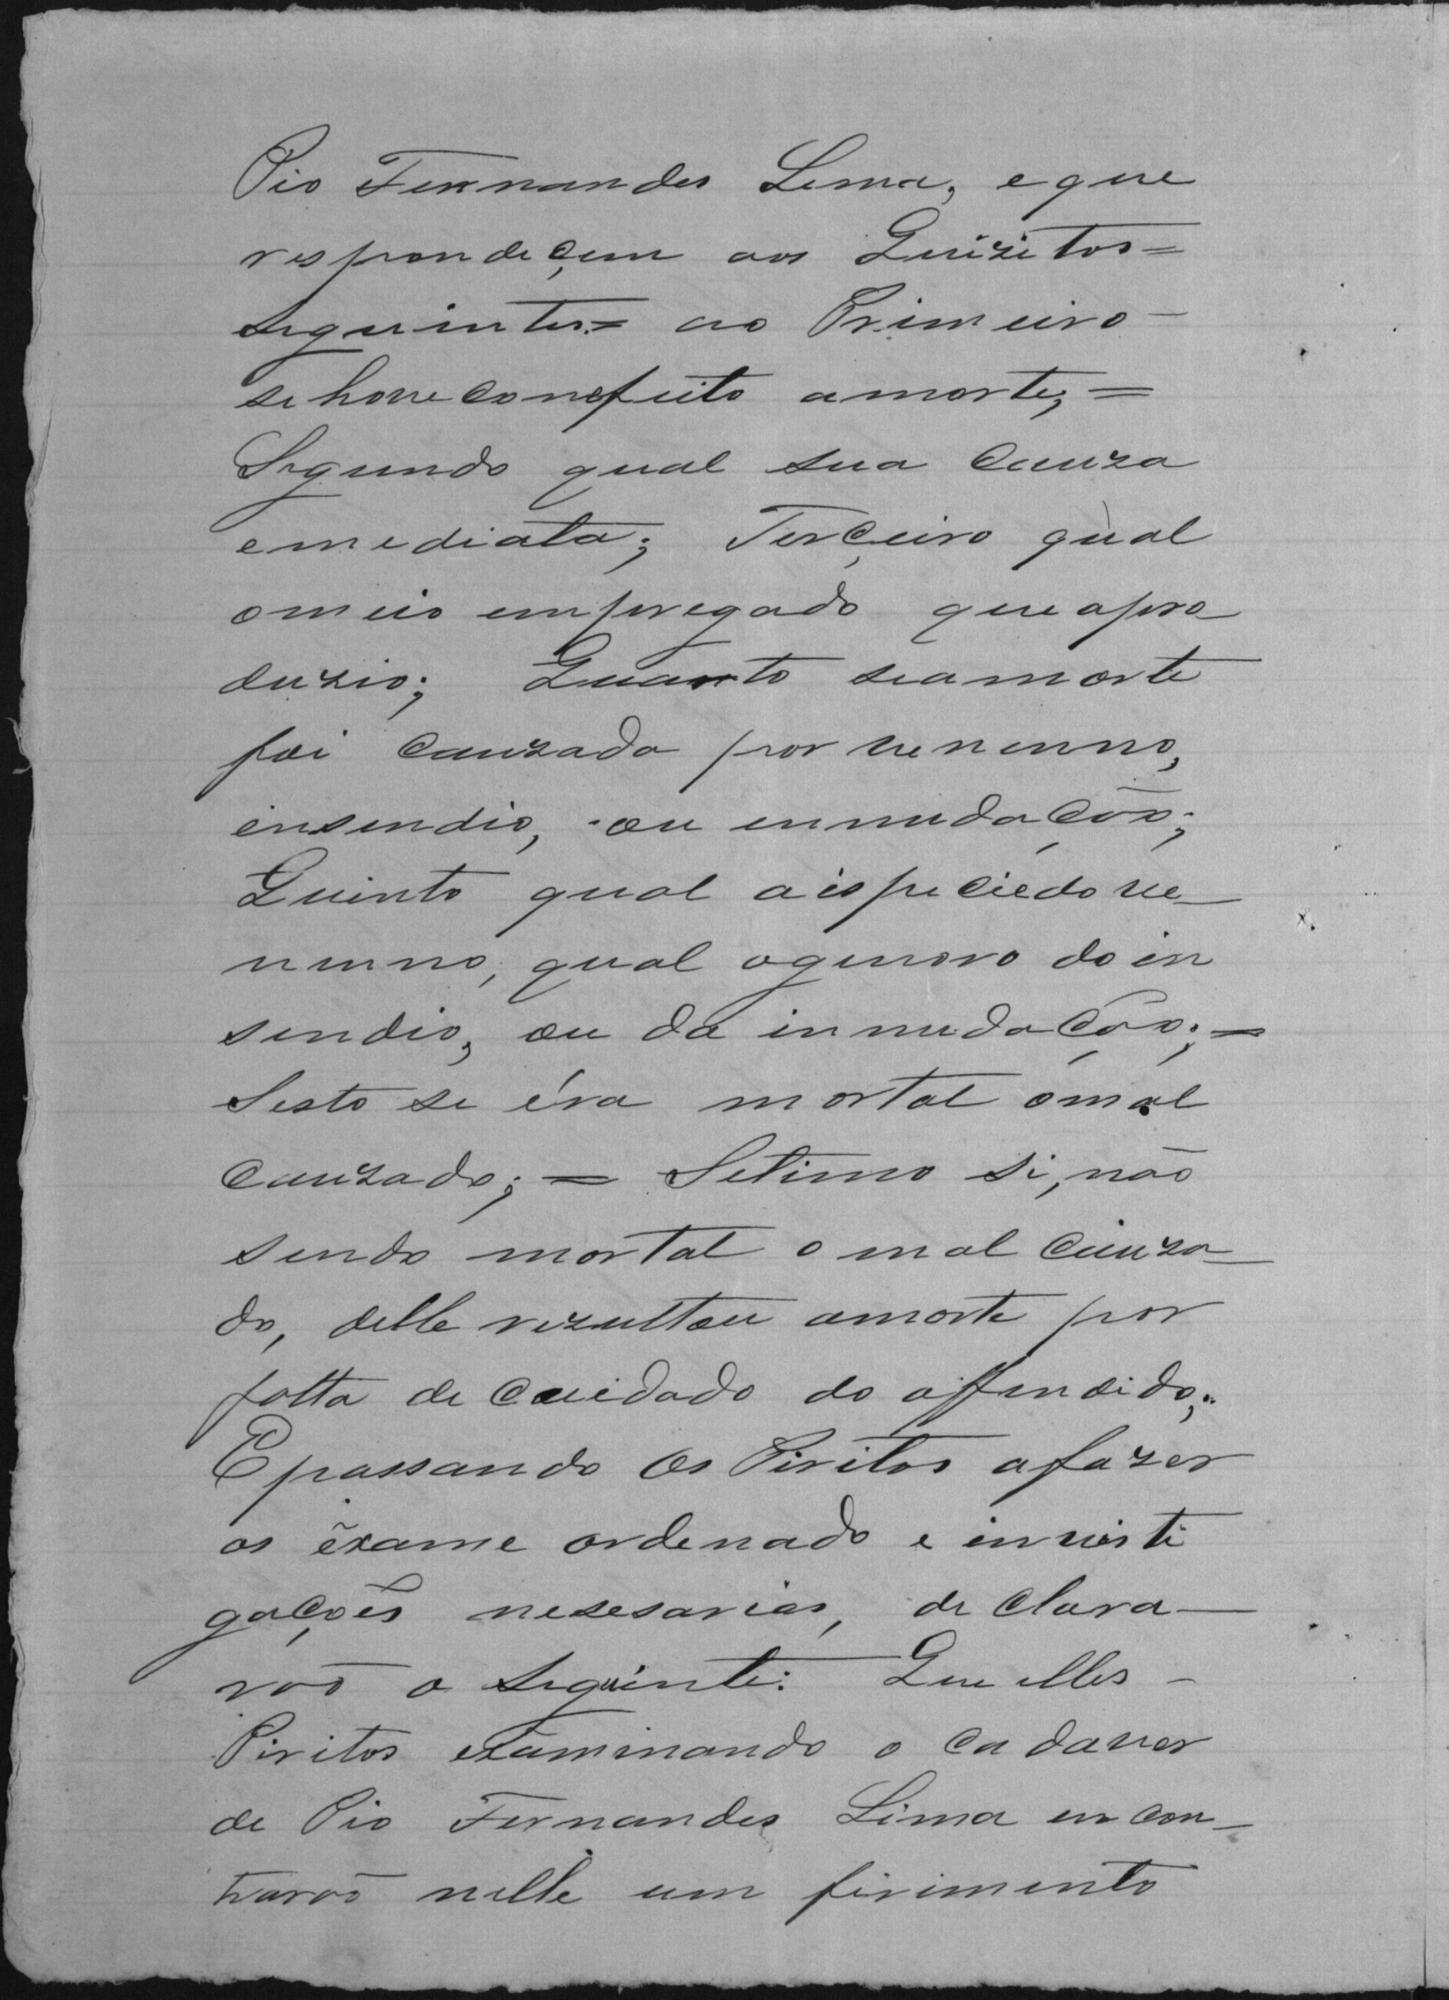 Pio Fernandes Lima, e que
respondeçem aos Quizitos=
seguintes= ao Primeiro -
se houve com efeito a morte; =
Segundo qual sua cauza
emediata; Terçeiro qual
o meio empregado que apro-
duzio; Quarto se a morte
foi cauzada por venenno,
ensendio, ou ennudação;
Quinto qual a ispecie do ve-
nenno, qual o genero do in
sendio, ou da innudação; =
Sesto se éra mortal o mal
cauzado; = Setimo si, não
sendo mortal o mal cauza-
do, delle rezultou a morte por
falta de cuidado do offendido;
E passando os Piritos a fazer
os exame ordenado e invisti
gações nesesarias, declara-
rão o seguinte: Que elles -
Piritos examinando o cadaver
de Pio Fernandes Lima encon-
trarão nelle um firimento